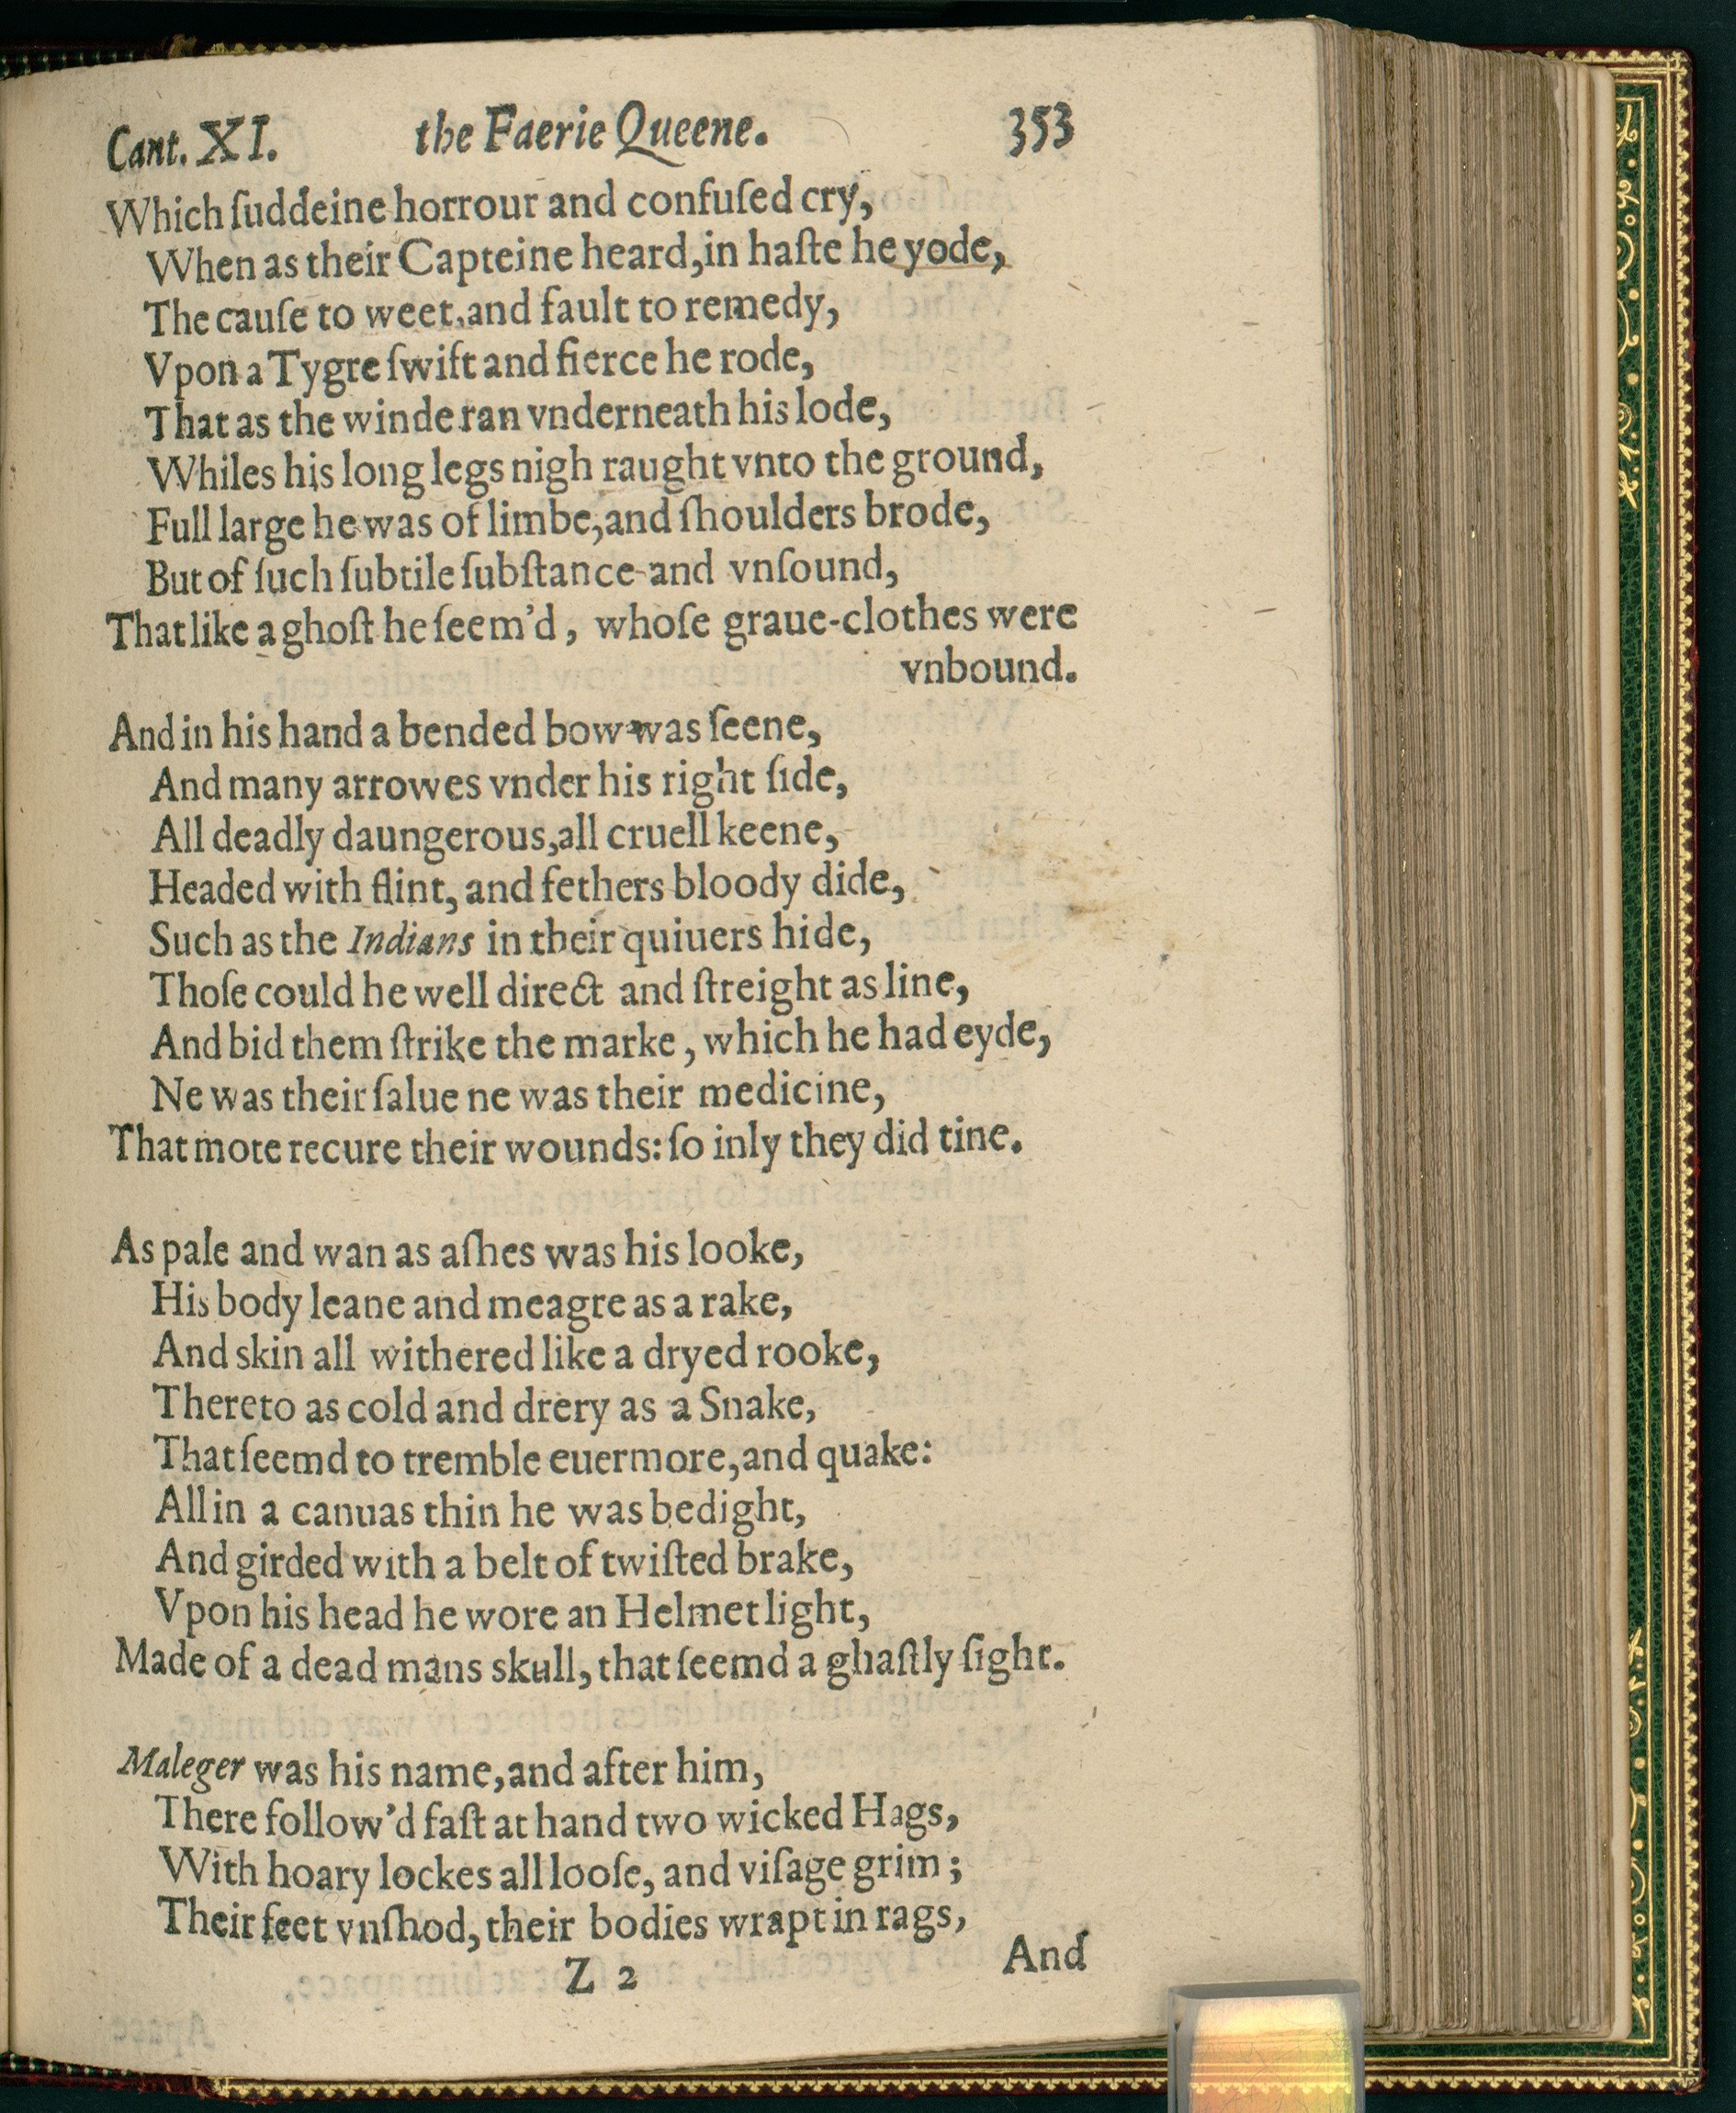 Cant. XI. the Faerie Queene. 353
Which ſuddeine horrour and confuſed cry,
When as their Capteine heard, in haſte he yode,
The cauſe to weet, and fault to remedy,
Vpon a Tygre ſwift and fierce he rode,
That as the winde ran vnderneath his lode,
Whiles his long legs nigh raught vnto the ground,
Full large he was of limbe, and ſhoulders brode,
But of ſuch ſubtile ſubſtance and vnſound,
That like a ghoſt he ſeem'd, whoſe graue-clothes were
vnbound.
And in his hand a bended bow was ſeene,
And many arrowes vnder his right ſide,
All deadly daungerous, all cruell keene,
Headed with flint, and fethers bloody dide,
Such as the Indians in their quiuers hide,
Thoſe could he well direct and ſtreight as line,
And bid them ſtrike the marke, which he had eyde,
Ne was their ſalue ne was their medicine,
That mote recure their wounds: ſo inly they did tine.
As pale and wan as aſhes was his looke,
His body leane and meagre as a rake,
And skin all withered like a dryed rooke,
Thereto as cold and drery as a Snake,
That ſeemd to tremble euermore, and quake:
All in a canuas thin he was bedight,
And girded with a belt of twiſted brake,
Vpon his head he wore an Helmet light,
Made of a dead mans skull, that ſeemd a ghaſtly ſight.
Maleger was his name, and after him,
There follow'd faſt at hand two wicked Hags,
With hoary lockes all looſe, and viſage grim;
Their feet vnſhod, their bodies wrapt in rags,
And
Z 2